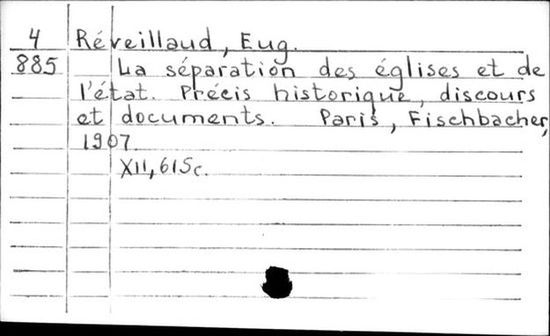 4 Réveillaud, Eug.
885 La séparation des églises et de
l'état. Précis historique, discours
et documents. Paris, Fischbacher,
1907.
XII, 615c.